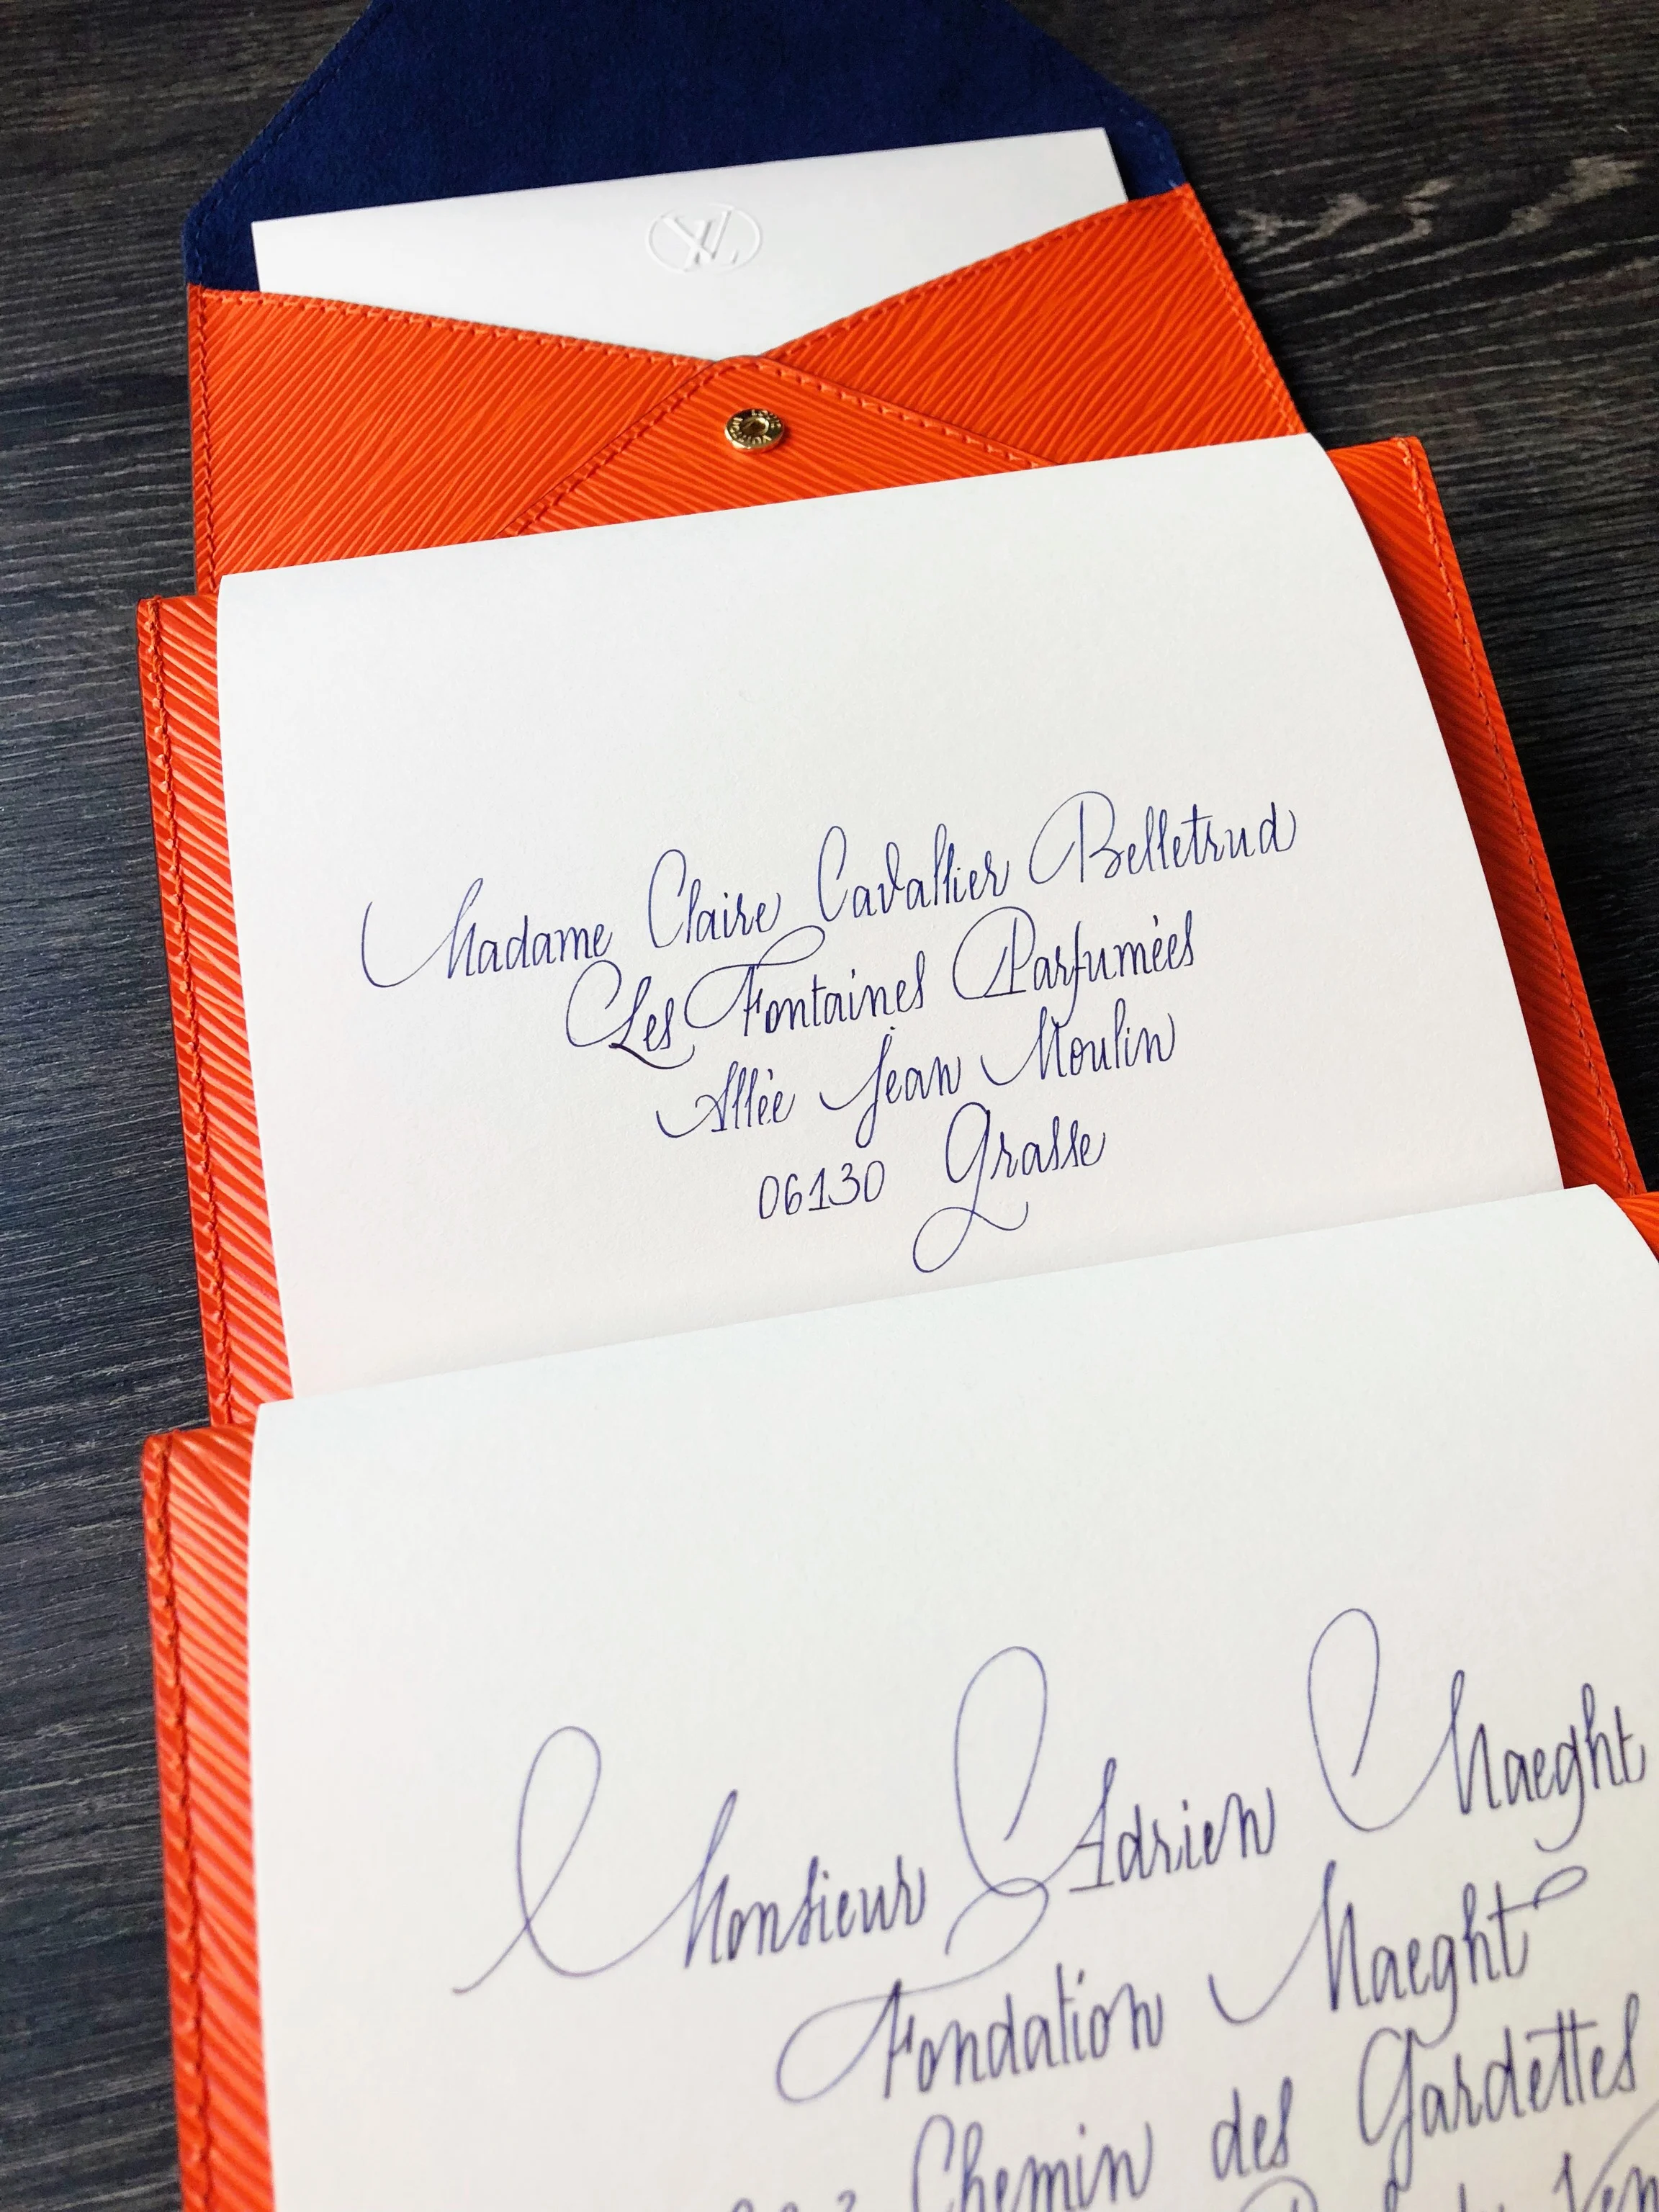 LV
LOUIS VUITTON
Madame Claire Cavallier Belletrud
Les Fontaines Parfumées
Allée Jean Moulin
06130 Grasse
Monsieur Adrien Maeght
Fondation Maeght
Chemin des Gardettes